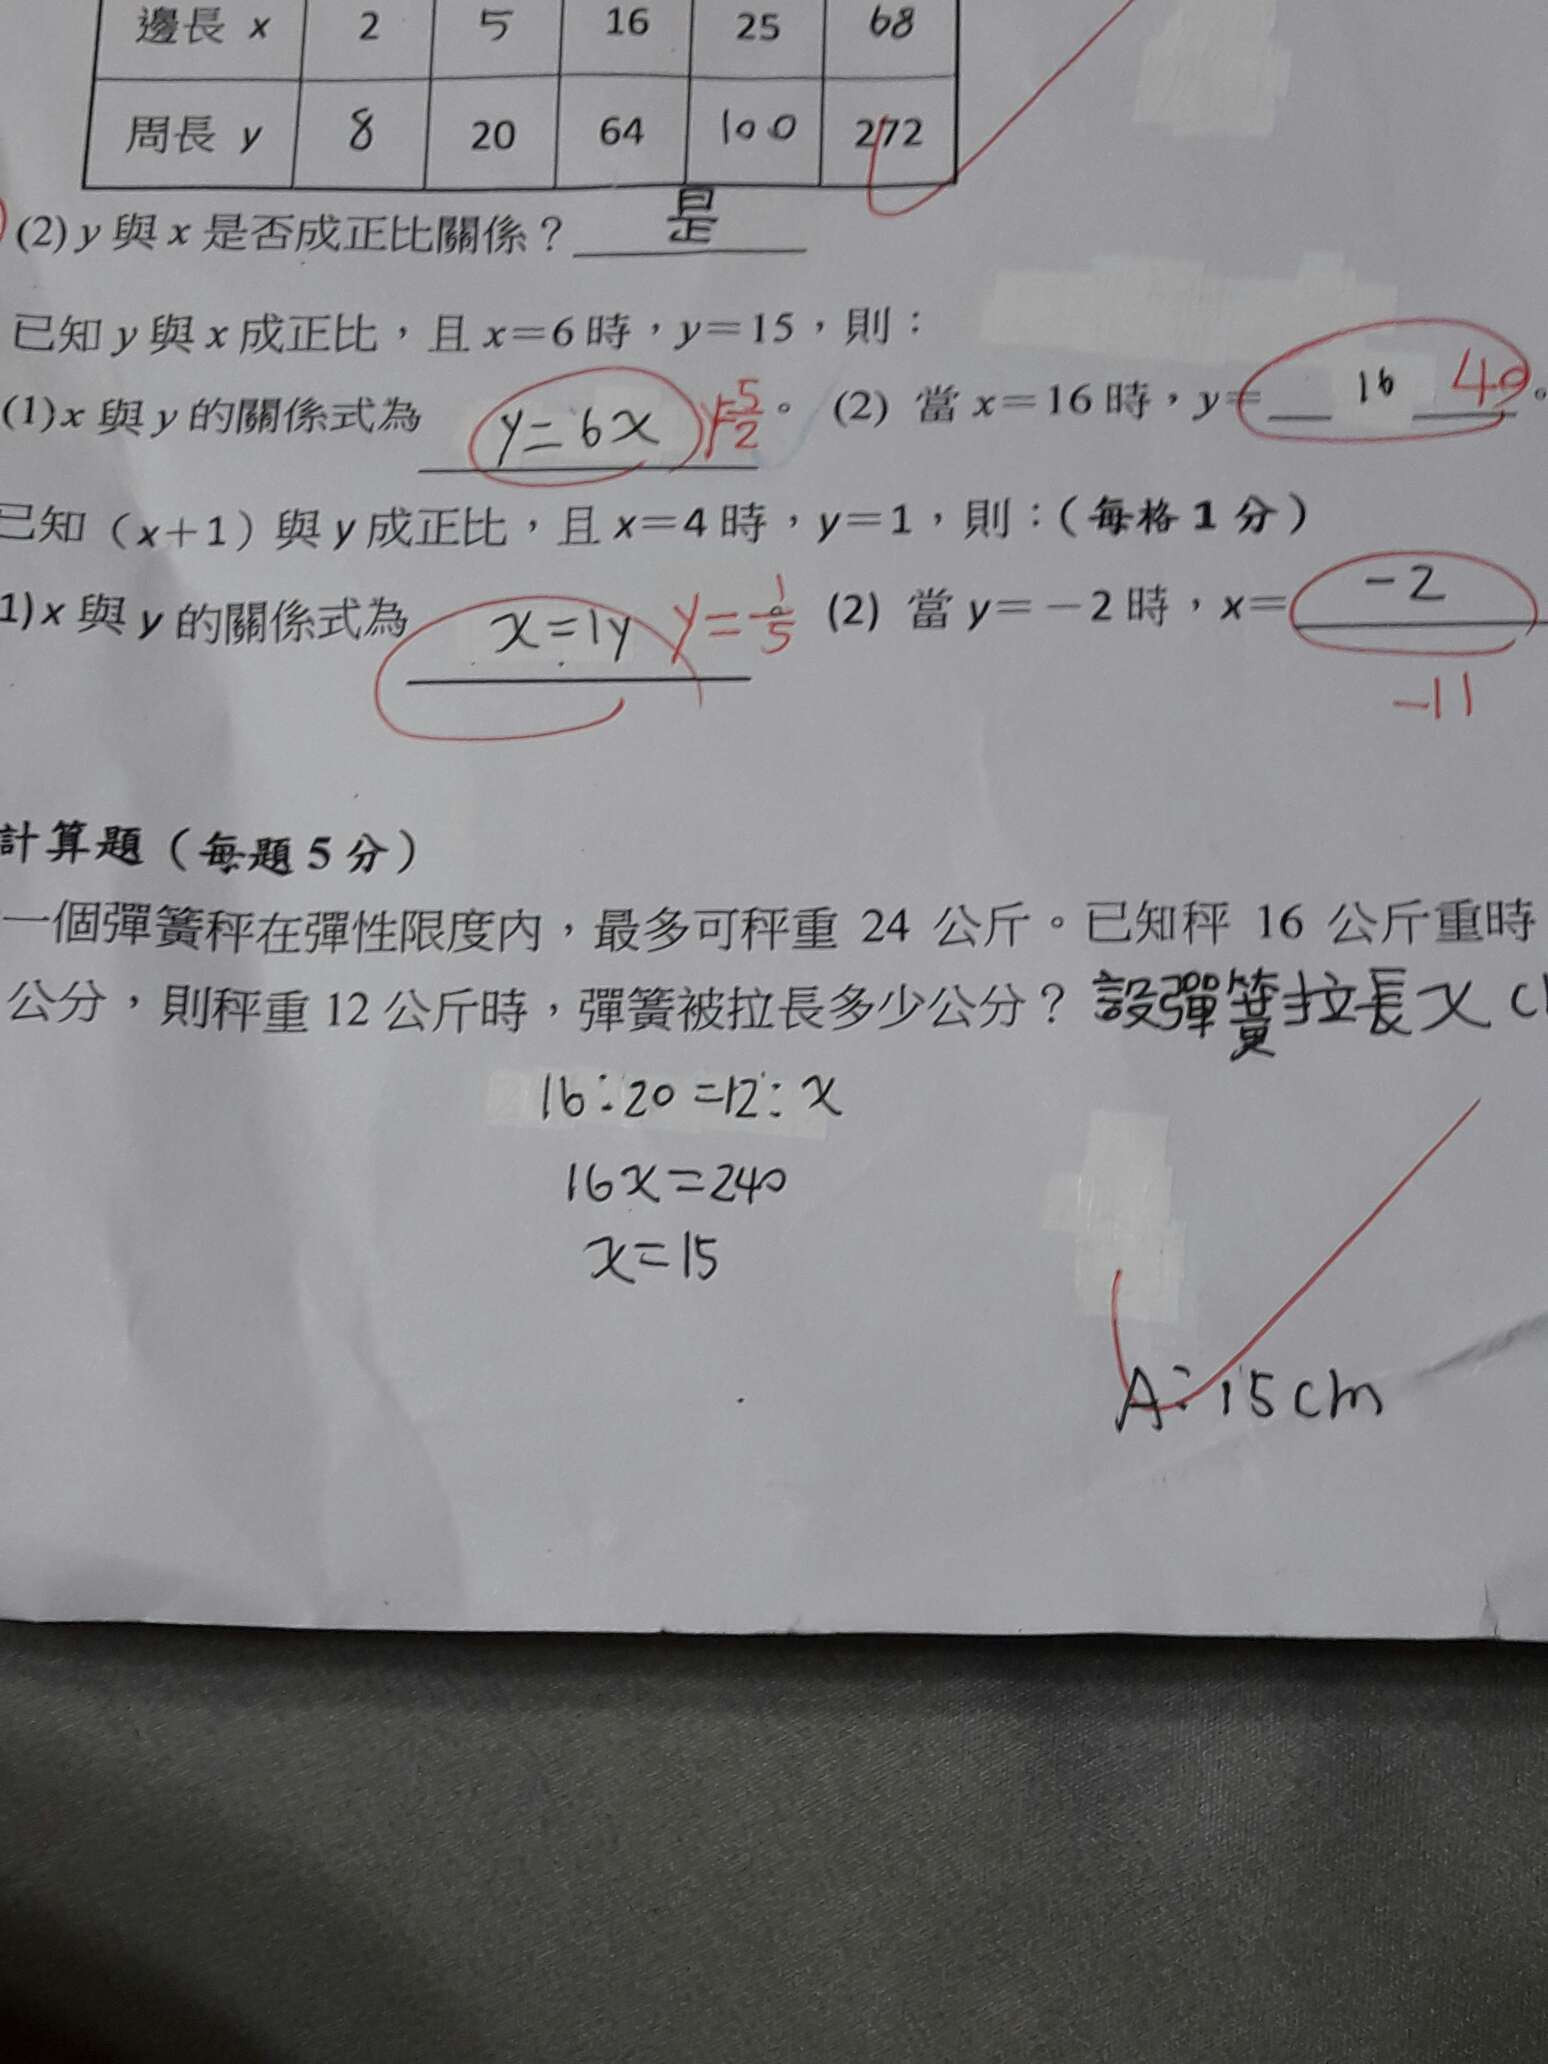 邊長 x 2 5 16 25 68
周長 y 8 20 64 100 272
(2) y 與 x 是否成正比關係？ 是
已知 y 與 x 成正比，且 x＝6 時，y＝15，則：
(1) x 與 y 的關係式為 y=6x y=5/2 。 (2) 當 x＝16 時，y＝ 16 40 。
已知（x＋1）與 y 成正比，且 x＝4 時，y＝1，則：（每格 1 分）
1) x 與 y 的關係式為 x=1y y=1/5 。 (2) 當 y＝－2 時，x＝ -2
-11
計算題（每題 5 分）
一個彈簧秤在彈性限度內，最多可秤重 24 公斤。已知秤 16 公斤重時
公分，則秤重 12 公斤時，彈簧被拉長多少公分？ 設彈簧拉長x c
16:20=12:x
16x=240
x=15
A:15cm